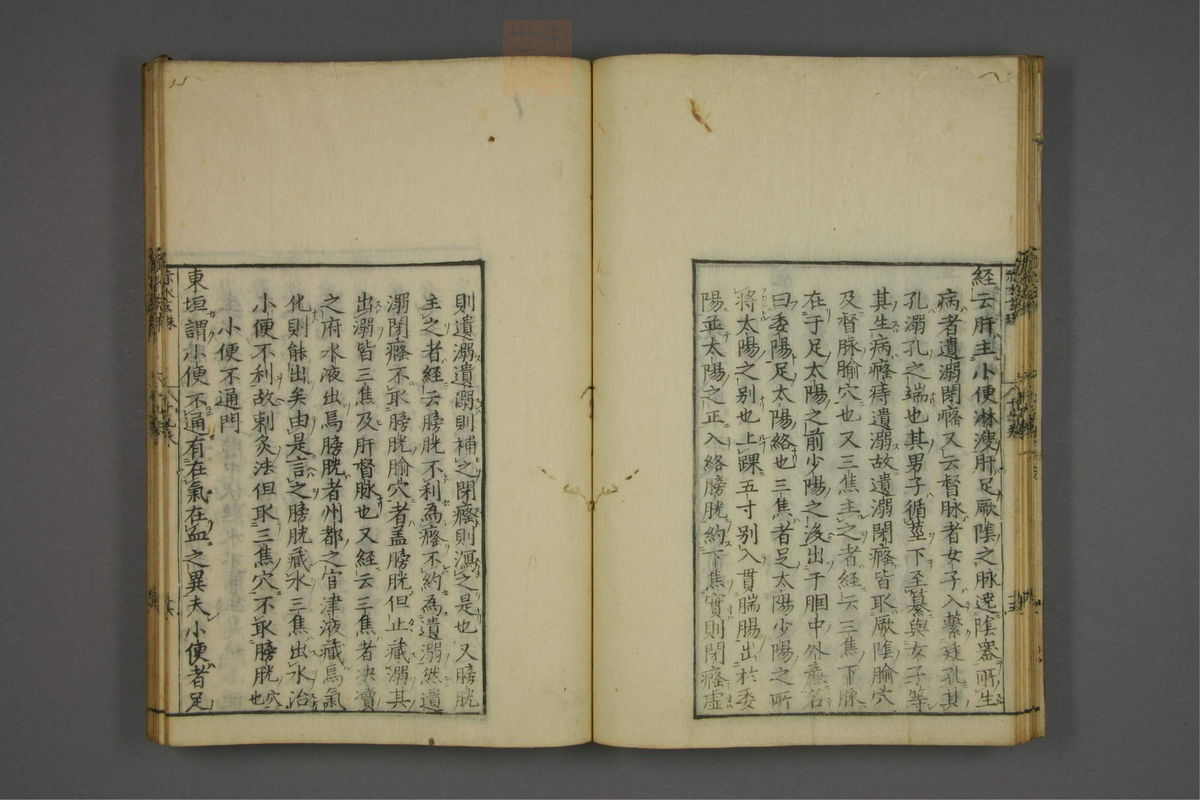 経云肝主小便淋溲肝足厥陰之脉遶陰器所生
病者遺溺閉癃又云督脉者女子入繫廷孔其
孔溺孔之端也其男子循莖下至纂與女子等
其生病癃痔遺溺故遺溺閉癃皆取厥陰腧穴
及督脉腧穴也又三焦主之者経云三焦下脉
在于足太陽之前少陽之後出于膕中外廉名
曰委陽足太陽絡也三焦者足太陽少陽之所
將太陽之别也上踝五寸别入貫腨腸出於委
陽並太陽之正入絡膀胱約下焦實則閉癃虚
則遺溺遺溺則補之閉癃則瀉之是也又膀胱
主之者経云膀胱不利為癃不約為遺溺然遺
溺閉癃不取膀胱腧穴者盖膀胱但止藏溺其
出溺皆三焦及肝督脉也又経云三焦者决瀆
之府水液出焉膀胱者州都之官津液藏焉氣
化則能出矣由是言之膀胱藏水三焦出水治
小便不利故刺灸法但取三焦穴不取膀胱穴也
小便不通門
東垣謂小便不通有在氣在血之異夫小便者足